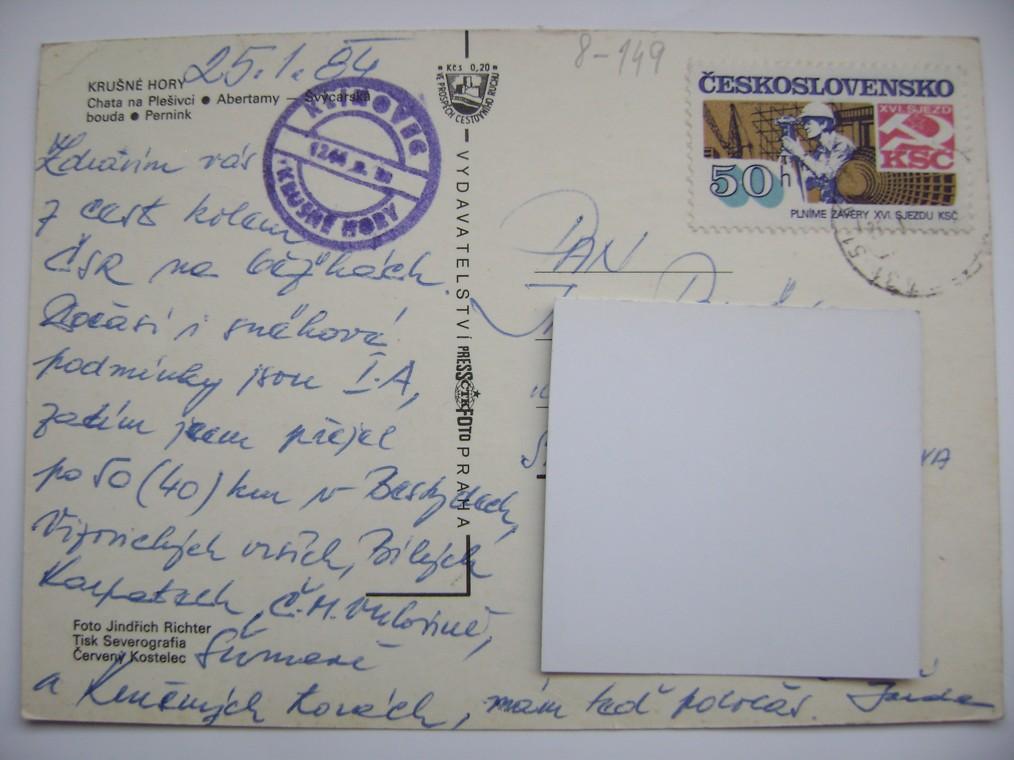 25.1.84
KRUŠNÉ HORY
Chata na Plešivci ● Abertamy — Švýcarská
bouda ● Pernink
KLÍNOVEC
1244 m. n. m.
KRUŠNÉ HORY
Zdravím vás
z cest kolem
ČSR na běžkách.
Počasí i sněhové
podmínky jsou I.A,
zatím jsem přejel
po 50 (40) km v Beskydech,
Vizovických vrších, Bílých
Karpatech, Č.M. Vrchovině,
Šumavě
a Krušných horách, mám teď poločas. Jarda
Foto Jindřich Richter
Tisk Severografia
Červený Kostelec
Kčs 0,20
VE PROSPĚCH CESTOVNÍHO RUCHU
VYDAVATELSTVÍ PRESSFOTO PRAHA
ČTK
8-149
ČESKOSLOVENSKO
XVI. SJEZD
KSČ
50 h
PLNÍME ZÁVĚRY XVI. SJEZDU KSČ
PAN